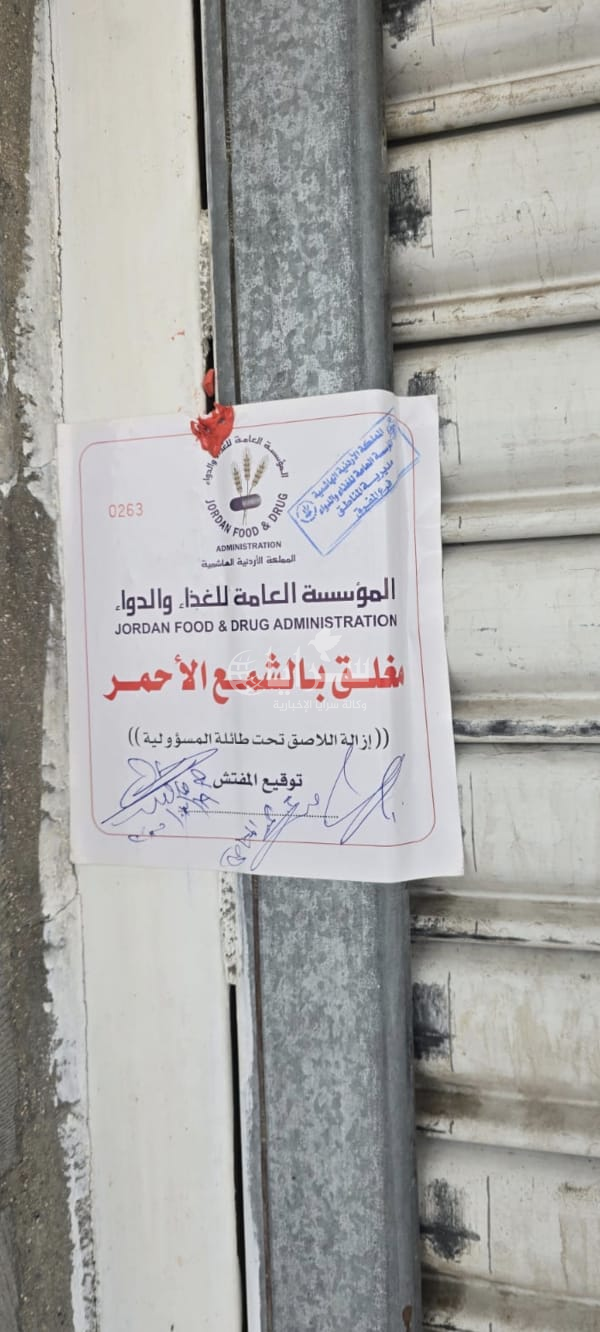 المؤسسة العامة للغذاء والدواء
JORDAN FOOD & DRUG
ADMINISTRATION
المملكة الأردنية الهاشمية
0263
المملكة الأردنية الهاشمية
المؤسسة العامة للغذاء والدواء
مديرية المناطق
فرع المفرق
المؤسسة العامة للغذاء والدواء
JORDAN FOOD & DRUG ADMINISTRATION
مغلق بالشمع الأحمر
وكالة سرايا الإخبارية
((إزالة اللاصق تحت طائلة المسؤولية))
توقيع المفتش